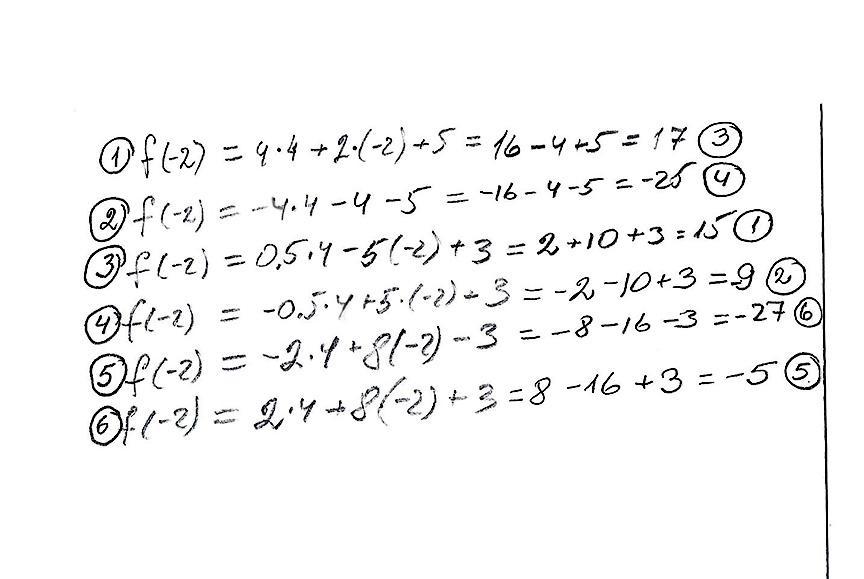 ① f(-2) = 4·4+2·(-2)+5 = 16-4+5 = 17 ③
② f(-2) = -4·4-4-5 = -16-4-5 = -25 ④
③ f(-2) = 0,5·4-5(-2)+3 = 2+10+3 = 15 ①
④ f(-2) = -0.5·4+5·(-2)+3 = -2-10+3 = -9 ②
⑤ f(-2) = -2·4+8(-2)-3 = -8-16-3 = -27 ⑥
⑥ f(-2) = 2·4+8(-2)+3 = 8-16+3 = -5 ⑤